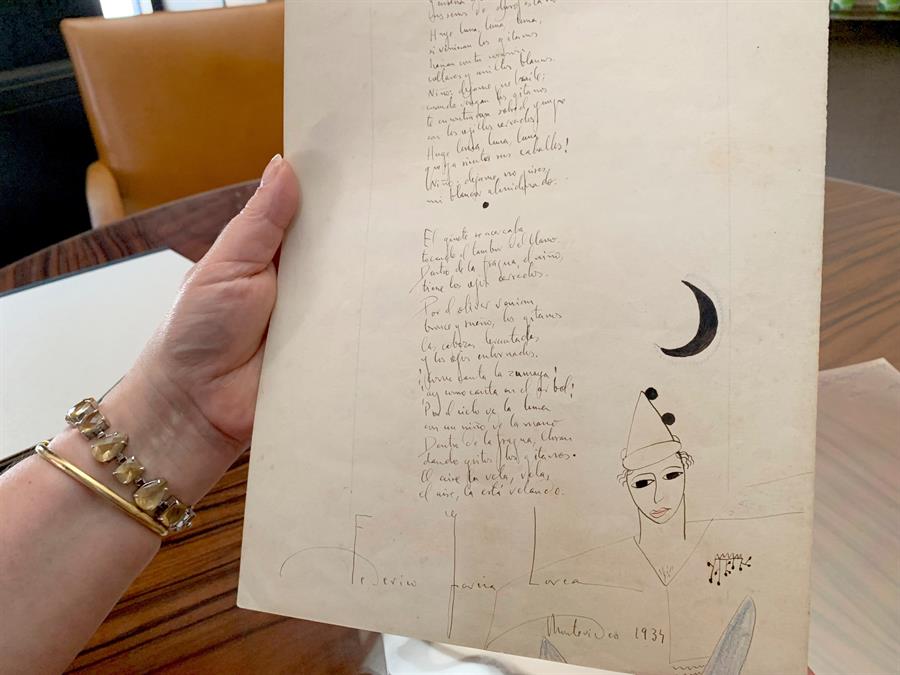 sus senos de duro estaño.
Huye luna, luna, luna,
si vinieran los gitanos
harian con tu corazón
collares y anillos blancos.
Niño, dejame que baile;
cuando vengan los gitanos
te encontrarán sobre el yunque
con los ojillos cerrados
Huye luna, luna, luna
que ya siento sus caballos!
Niño; dejame no pises,
mi blancor almidonado.
El ginete se acercaba
tocando el tambor del llano.
Dentro de la fragua el niño,
tiene los ojos cerrados.
Por el olivar venian,
bronce y sueño, los gitanos
las cabezas levantadas
y los ojos entornados.
¡Como canta la zumaya!
¡ay como canta en el arbol!
Por el cielo va la luna
con un niño de la mano
Dentro de la fragua, lloran
dando gritos, los gitanos.
El aire la vela, vela,
el aire, la está velando.
Federico García Lorca
Montevideo 1934